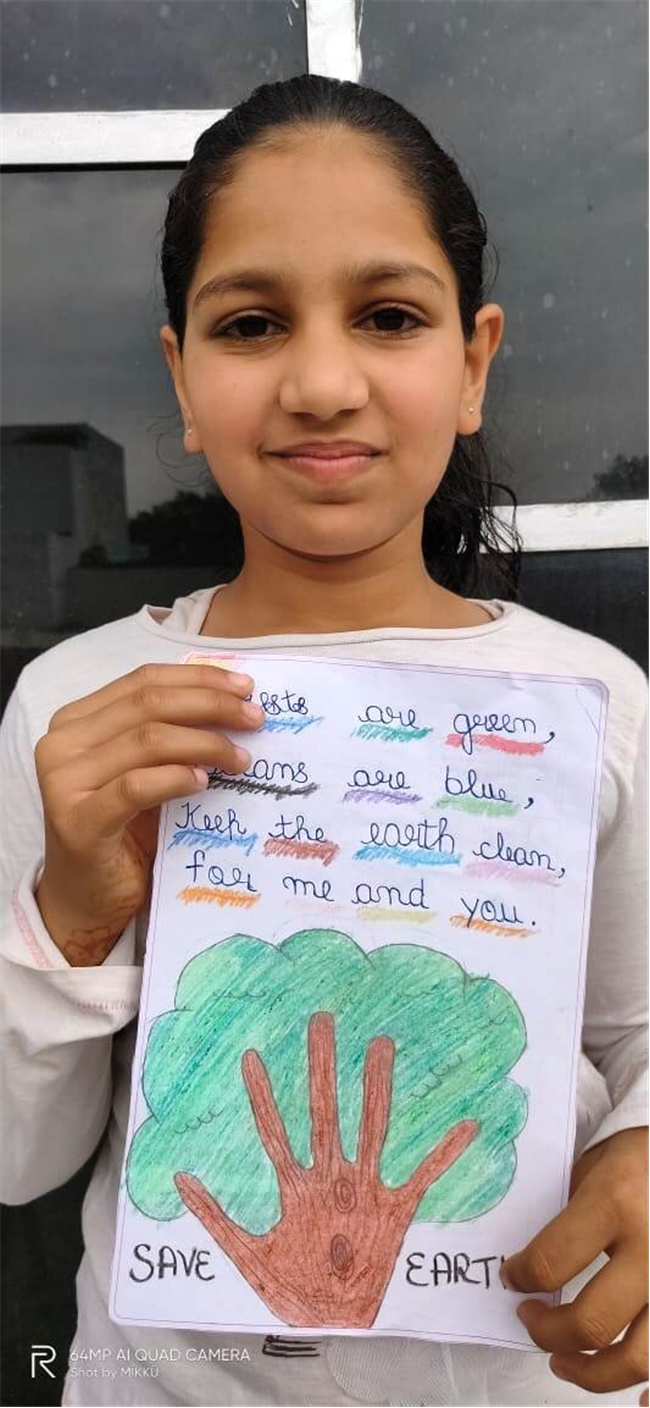 are green,
are blue,
Keep the earth clean,
for me and you.
SAVE EARTH
64MP AI QUAD CAMERA
Shot by MIKKU